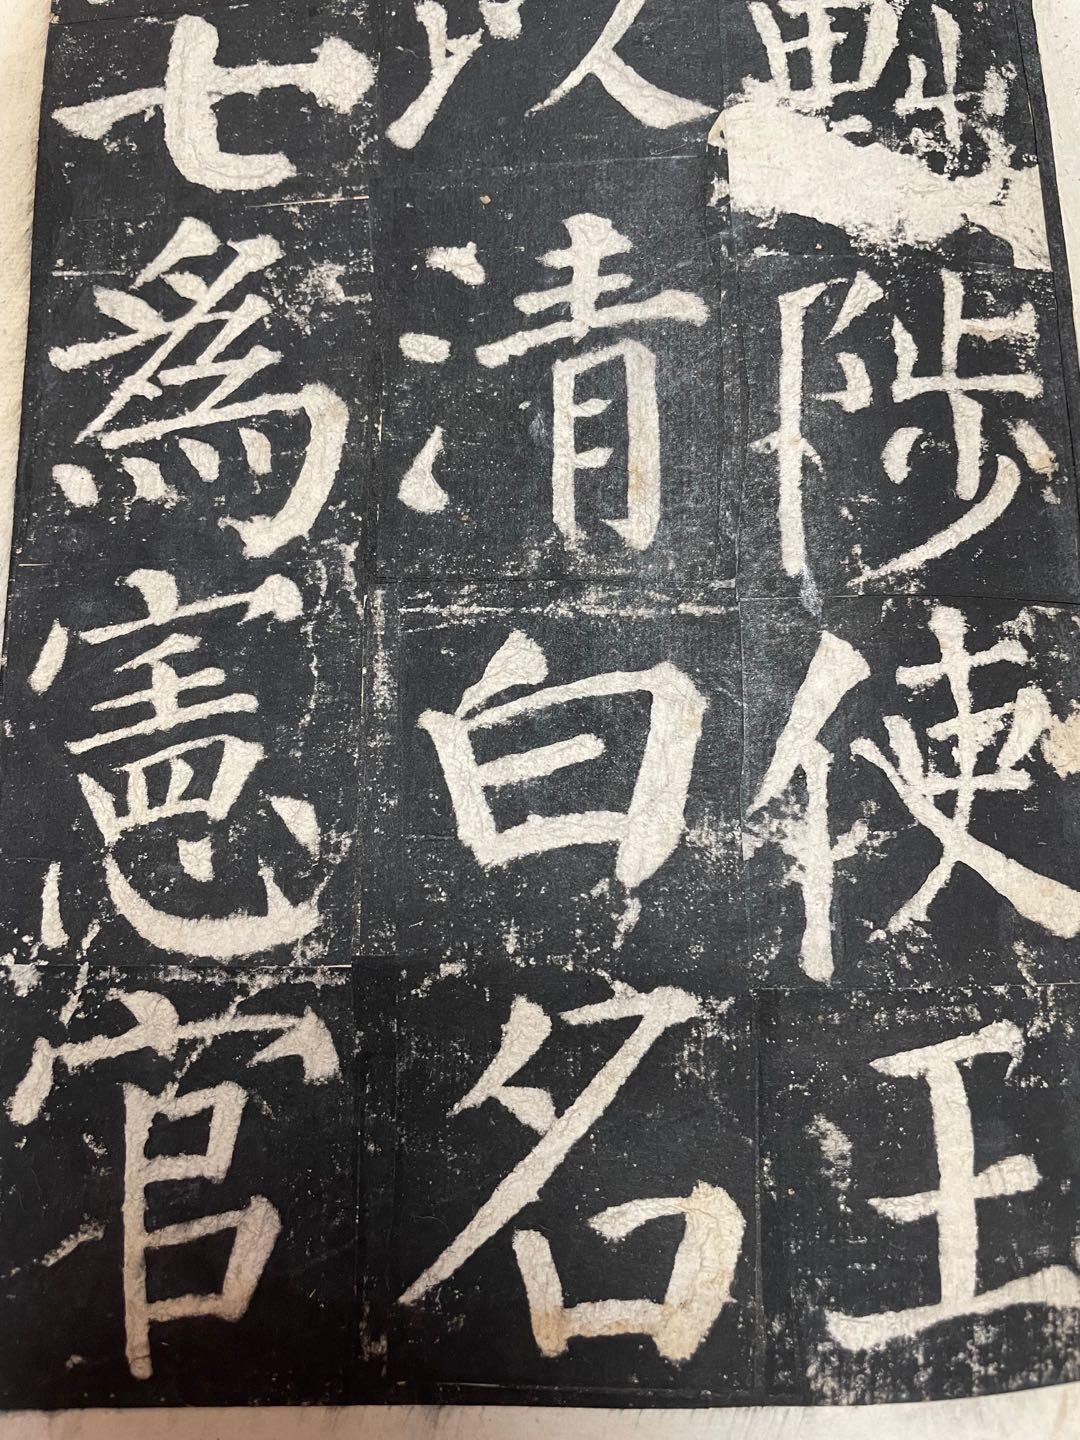 陟使王
以清白名
七為憲官